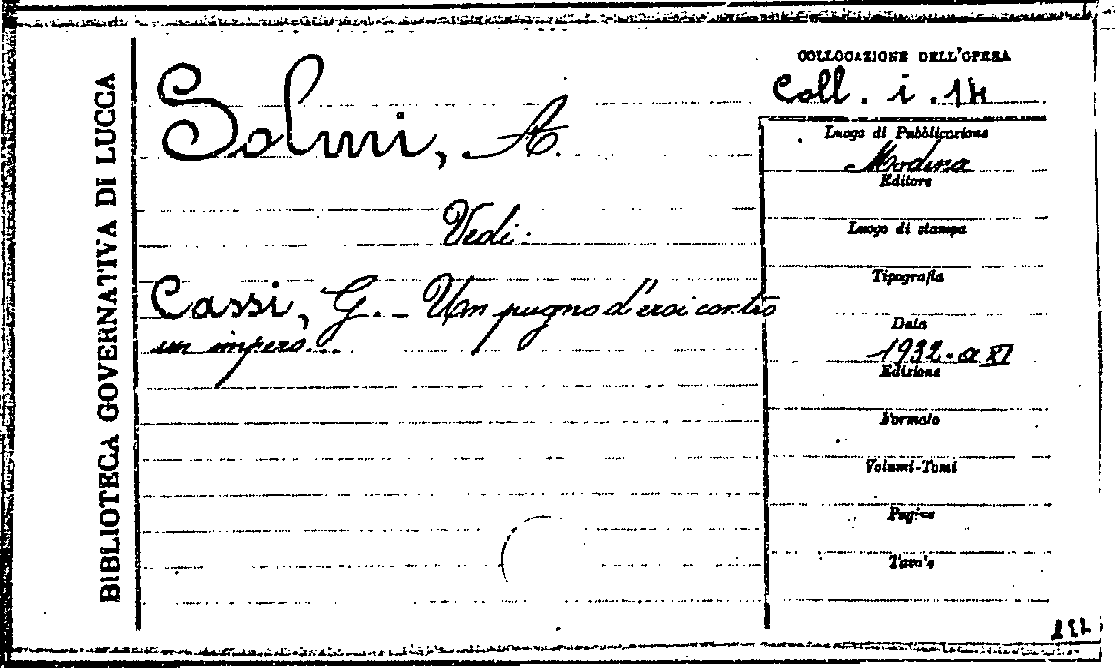 BIBLIOTECA GOVERNATIVA DI LUCCA
Solmi, A.
Vedi:
Cassi, G. - Un pugno d'eroi contro
un impero...
COLLOCAZIONE DELL'OPERA
Coll. i. 14
Luogo di Pubblicazione
Modena
Editore
Luogo di stampa
Tipografia
Data
1932-a XI
Edizione
Formato
Volumi-Tomi
Pagine
Tavole